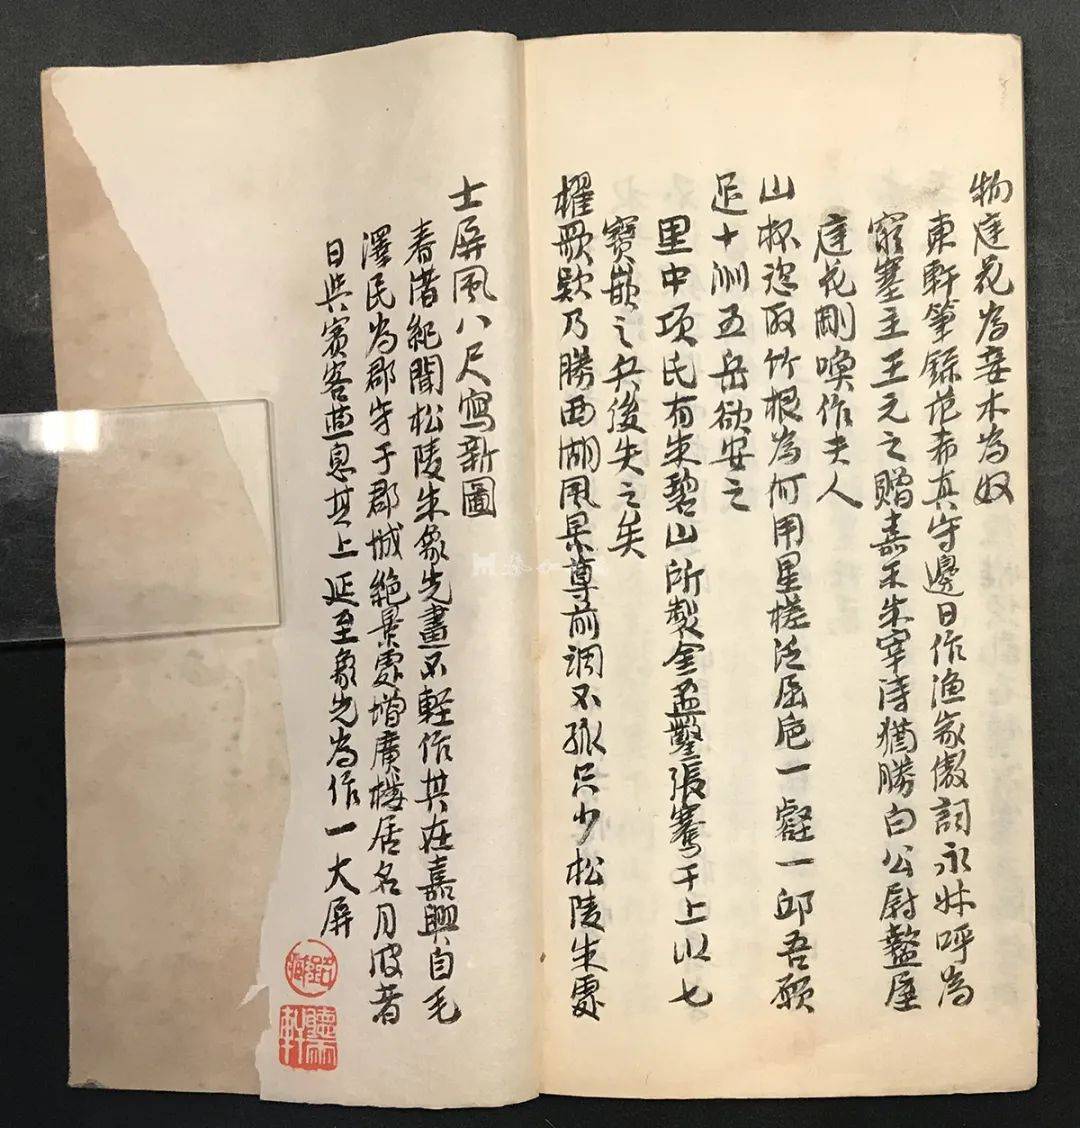 物庭花為妾木為奴
東軒筆錄范希真守邊日作漁家傲詞永叔呼為
窮塞主王元之贈嘉禾朱宰詩猶勝白公尉盩厔
庭花剛喚作夫人
山杯恣取竹根為何用星槎泛屈卮一壑一邱吾願
足十洲五岳欲安之
里中項氏有朱碧山所製金盃鑿張騫于上以七
寶嵌之兵後失之矣
櫂歌欵乃勝西湖風景尊前調不孤只少松陵朱處
士屏風八尺寫新圖
春渚紀聞松陵朱象先畫不輕作其在嘉興自毛
澤民為郡守于郡城絕景處增廣樓居名月波者
日與賓客燕息其上延至象先為作一大屏
聽
軒